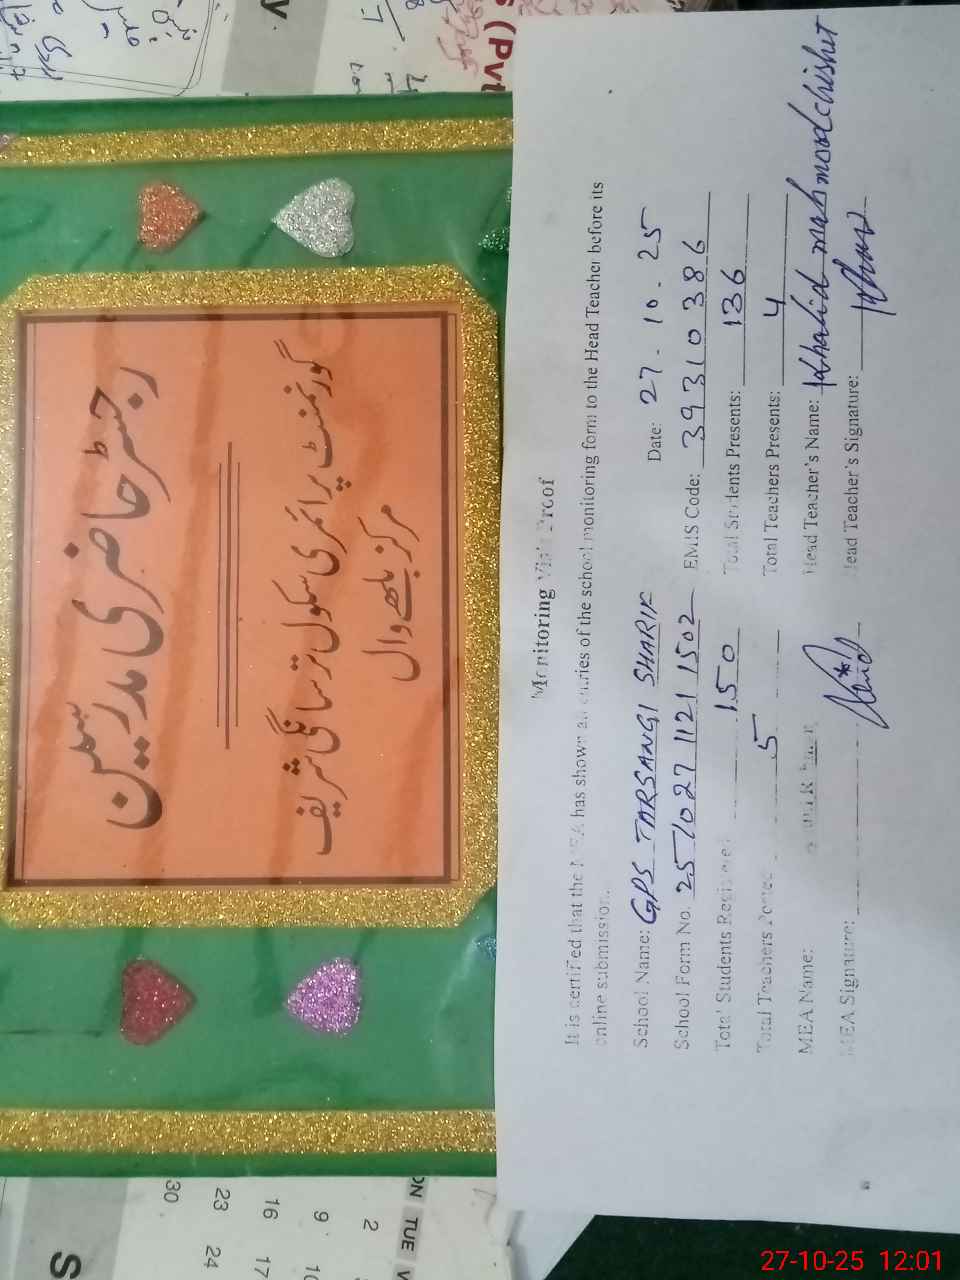 رجسٹر حاضری مدرسین
گورنمنٹ پرائمری سکول ترسانگی شریف
مرکز بلھے وال
Monitoring Visit Proof
It is certified that the MEA has shown all entries of the school monitoring form to the Head Teacher before its
online submission.
School Name: GPS TARSANGI SHARIF Date: 27-10-25
School Form No. 251027 1121 1502 EMIS Code: 39310386
Total Students Registered 150 Total Students Presents: 136
Total Teachers Posted 5 Total Teachers Presents: 4
MEA Name: Head Teacher's Name: Khalid mahmood chishti
MEA Signature: Head Teacher's Signature:
(Pvt
ON TUE
2
9
16 17
23 24
30
S
27-10-25 12:01